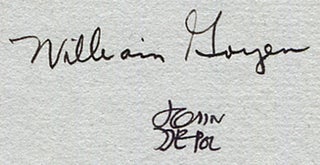 William Goyen
JOHN
DE POL